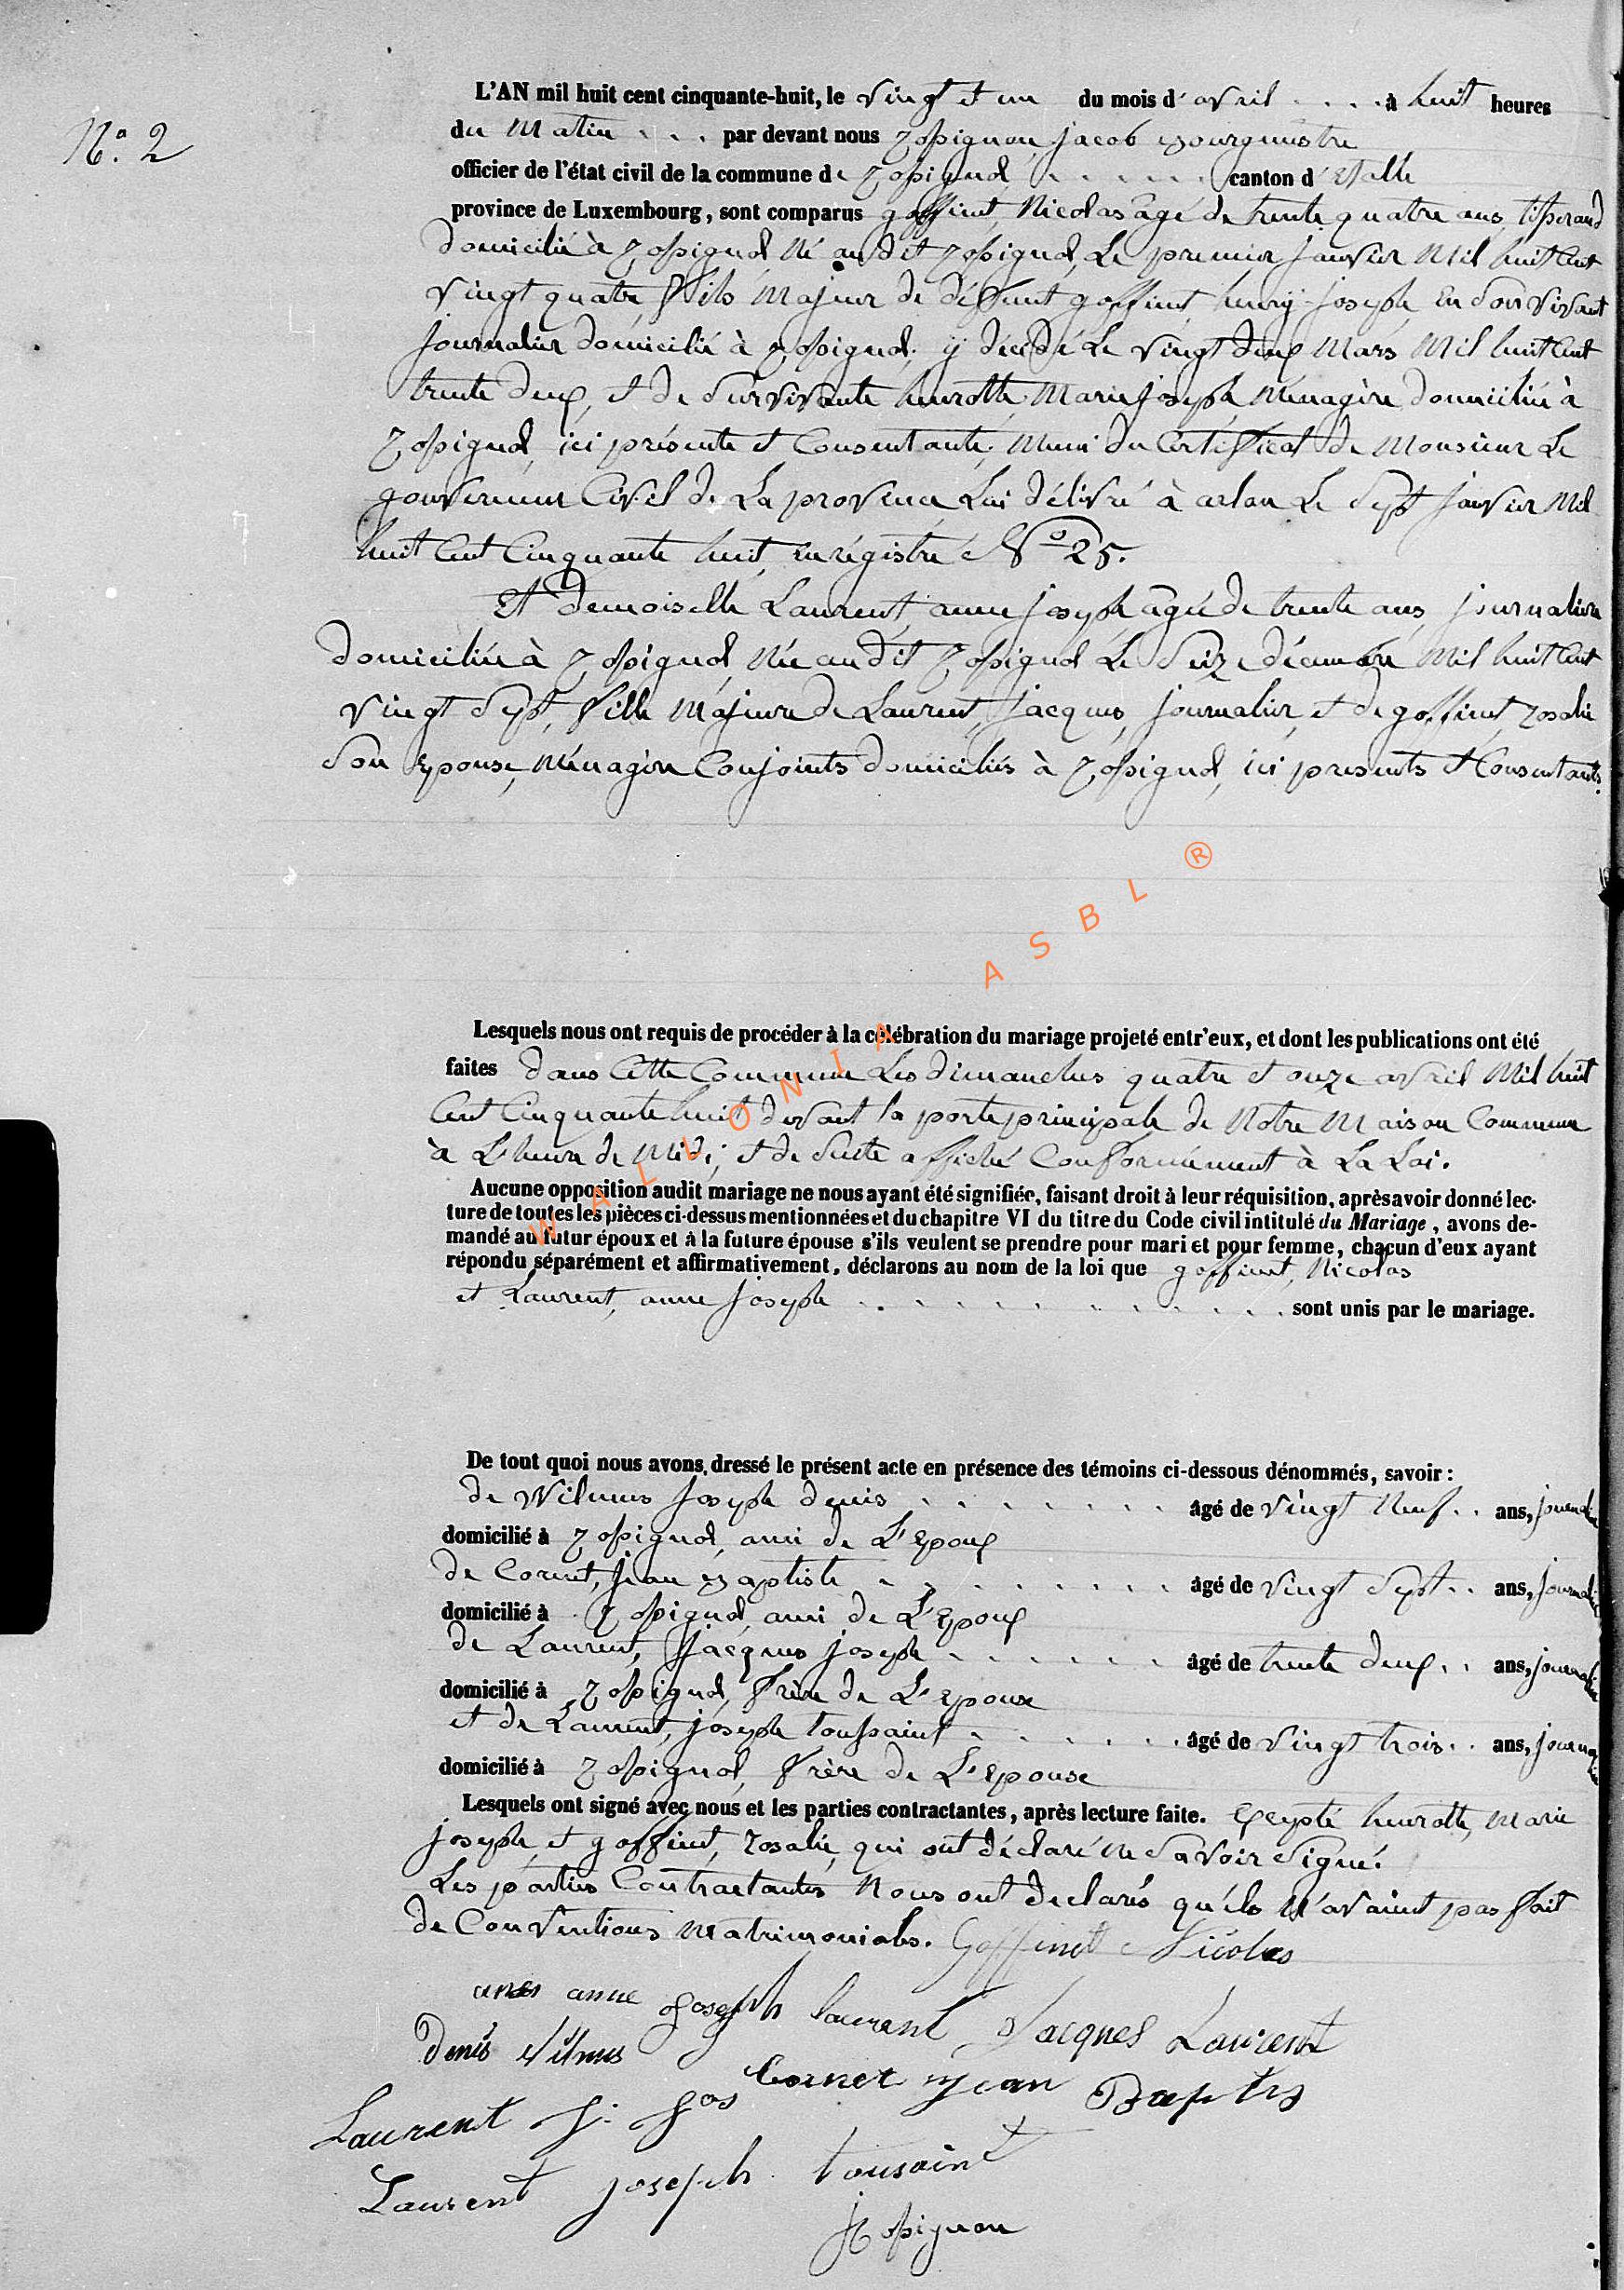 N.o 2
L'AN mil huit cent cinquante-huit, le vingt et un du mois d'avril . . . . à huit heures
du Matin . . . par devant nous rossignon, jacob Bourgmestre
officier de l'état civil de la commune de rossignol, . . . . . . canton d'Etalle
province de Luxembourg, sont comparus goffinet, Nicolas âgé de trente quatre ans, tisserand
domicilié à rossignol, Né audit rossignol, Le premier janvier Mil huit Cent
vingt quatre, fils Majeur de déffunt goffinet, henry-joseph, En Son vivant
journalier domicilié à rossignol, ÿ décédé Le vingt deux Mars Mil huit Cent
trente deux, et de Survivante heurotte, Marie joseph, Ménagère domiciliée à
rossignol, ici présente et Consentante; Muni du Certifficat de Monsieur Le
gouverneur Civil de La province Lui délivré à arlon Le Sept janvier Mil
huit Cent Cinquante huit, enrégistré No 25.
Et demoiselle Laurent, anne joseph, âgée de trente ans, journalière
domiciliée à rossignol, Née audit rossignol Le Seize décembre Mil huit Cent
vingt Sept, fille Majeure de Laurent, jacques, journalier, et de goffinet, rosalie
Son Epouse, Ménagère Conjoints domiciliés à rossignol, ici presents et Consentants.
Lesquels nous ont requis de procéder à la célébration du mariage projeté entr'eux, et dont les publications ont été
faites dans Cette Commune Les dimanches quatre et onze avril Mil huit
Cent Cinquante huit devant la porte principale de Notre Maison Commune
à L'heure de Midi; et de Suite affiché Conformément à La Loi.
Aucune opposition audit mariage ne nous ayant été signifiée, faisant droit à leur réquisition, après avoir donné lec-
ture de toutes les pièces ci-dessus mentionnées et du chapitre VI du titre du Code civil intitulé du Mariage, avons de-
mandé au futur époux et à la future épouse s'ils veulent se prendre pour mari et pour femme, chacun d'eux ayant
répondu séparément et affirmativement, déclarons au nom de la loi que goffinet, Nicolas
et Laurent, anne joseph . . . . . . . . . . . . sont unis par le mariage.
De tout quoi nous avons dressé le présent acte en présence des témoins ci-dessous dénommés, savoir:
de Wilmus joseph denis . . . . . . . âgé de vingt Neuf . . ans, journalier
domicilié à rossignol, ami de L'Epoux
de Cornet, jean Baptiste . . . . . . . . âgé de vingt Sept . . ans, journalier
domicilié à rossignol, ami de L'Epoux
de Laurent, jacques joseph . . . . . . âgé de trente deux . . ans, journalier
domicilié à rossignol, frère de L'Epouse
et de Laurent, joseph toussaint . . . . . . âgé de vingt trois . . ans, journalier
domicilié à rossignol, frère de L'Epouse
Lesquels ont signé avec nous et les parties contractantes, après lecture faite. Excepté heurotte, Marie
joseph, et goffinet, rosalie, qui ont déclaré ne Savoir Signé.
Les parties Contractantes Nous ont declarés qu'ils N'avaient pas fait
de Conventions Matrimoniales. Goffinet Nicolas
anne joseph laurent Jacques Laurent
Denis Wilmus Cornet Jean Baptis
Laurent J. Jos
Laurent joseph tousaint
J Rossignon
WALLONIA ASBL ®